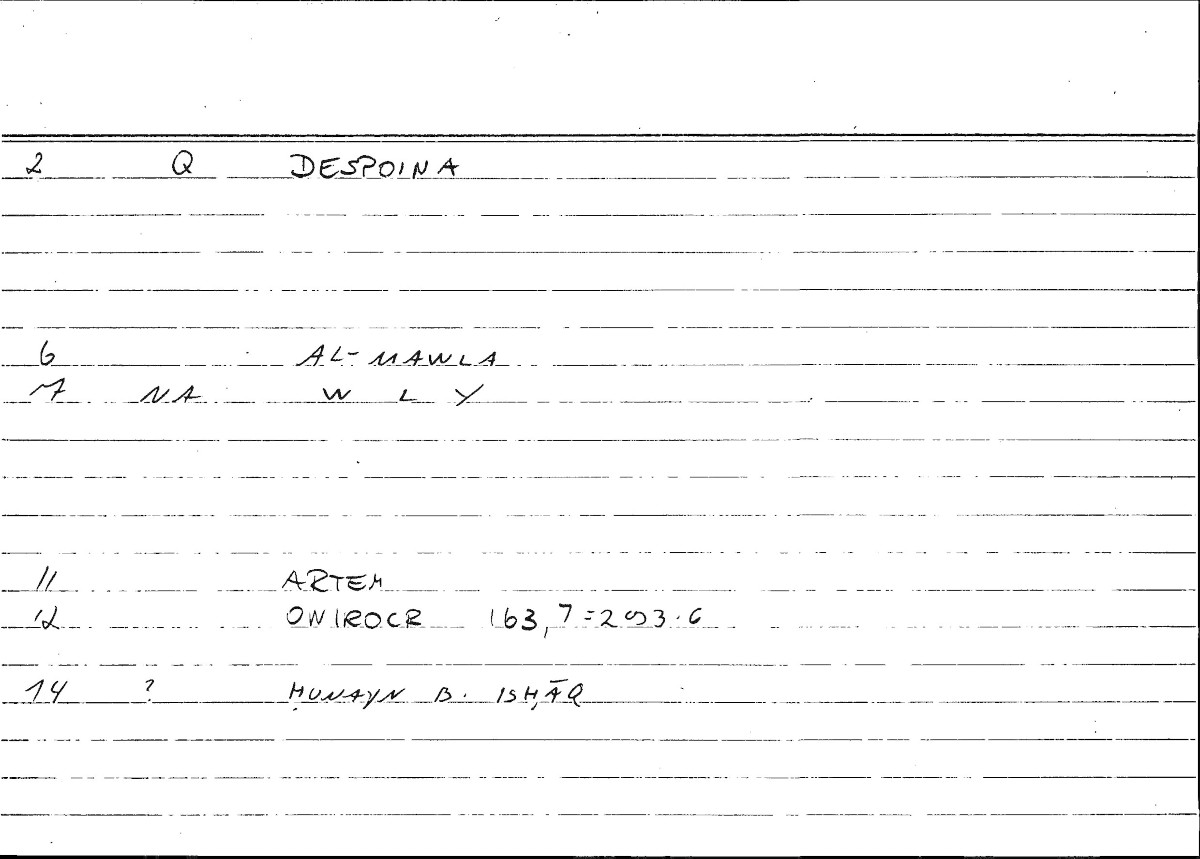 2 Q DESPOINA
6 AL-MAWLA
7 NA W L Y
11 ARTEM
12 ONIROCR 163,7=293.6
14 ? ḤUNAYN B. ISḤĀQ